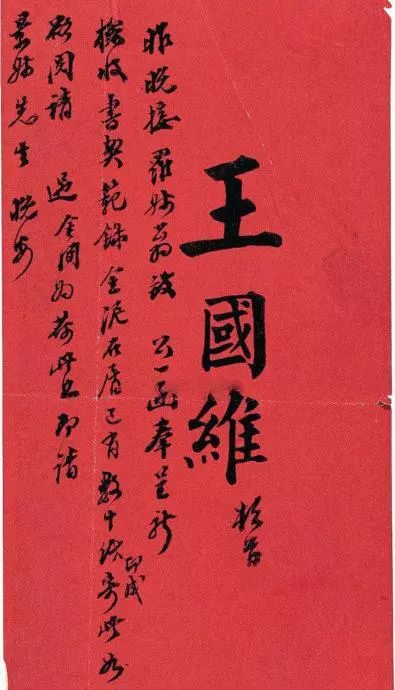 王國維
頓首
昨晚接 羅叔翁致 公一函奉呈祈
檢收書契錄金泥石屑已有數十紙印成寄此如
欲閱請 過舍閱為荷此上即請
景叔先生 晚安